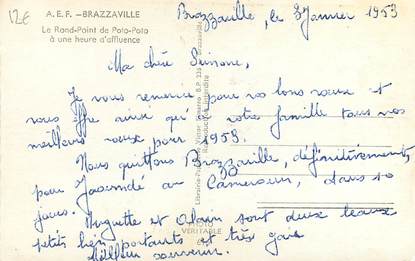 12€
A. E. F. - BRAZZAVILLE
Le Rond-Point de Poto-Poto
à une heure d'affluence
Brazzaville, le 3 Janvier 1953
Ma chère Simone,
Je vous remercie pour vos bons voeux et
vous offre ainsi qu'à votre famille tous nos
meilleurs voeux pour 1953.
Nous quittons Brazzaville, définitivement,
pour Yaoundé au Cameroun, dans 10
jours.
Huguette et Alain sont deux beaux
petits bien portants et très gais
Meilleur souvenir.
PHOTO
VERITABLE
Reproduction interdite